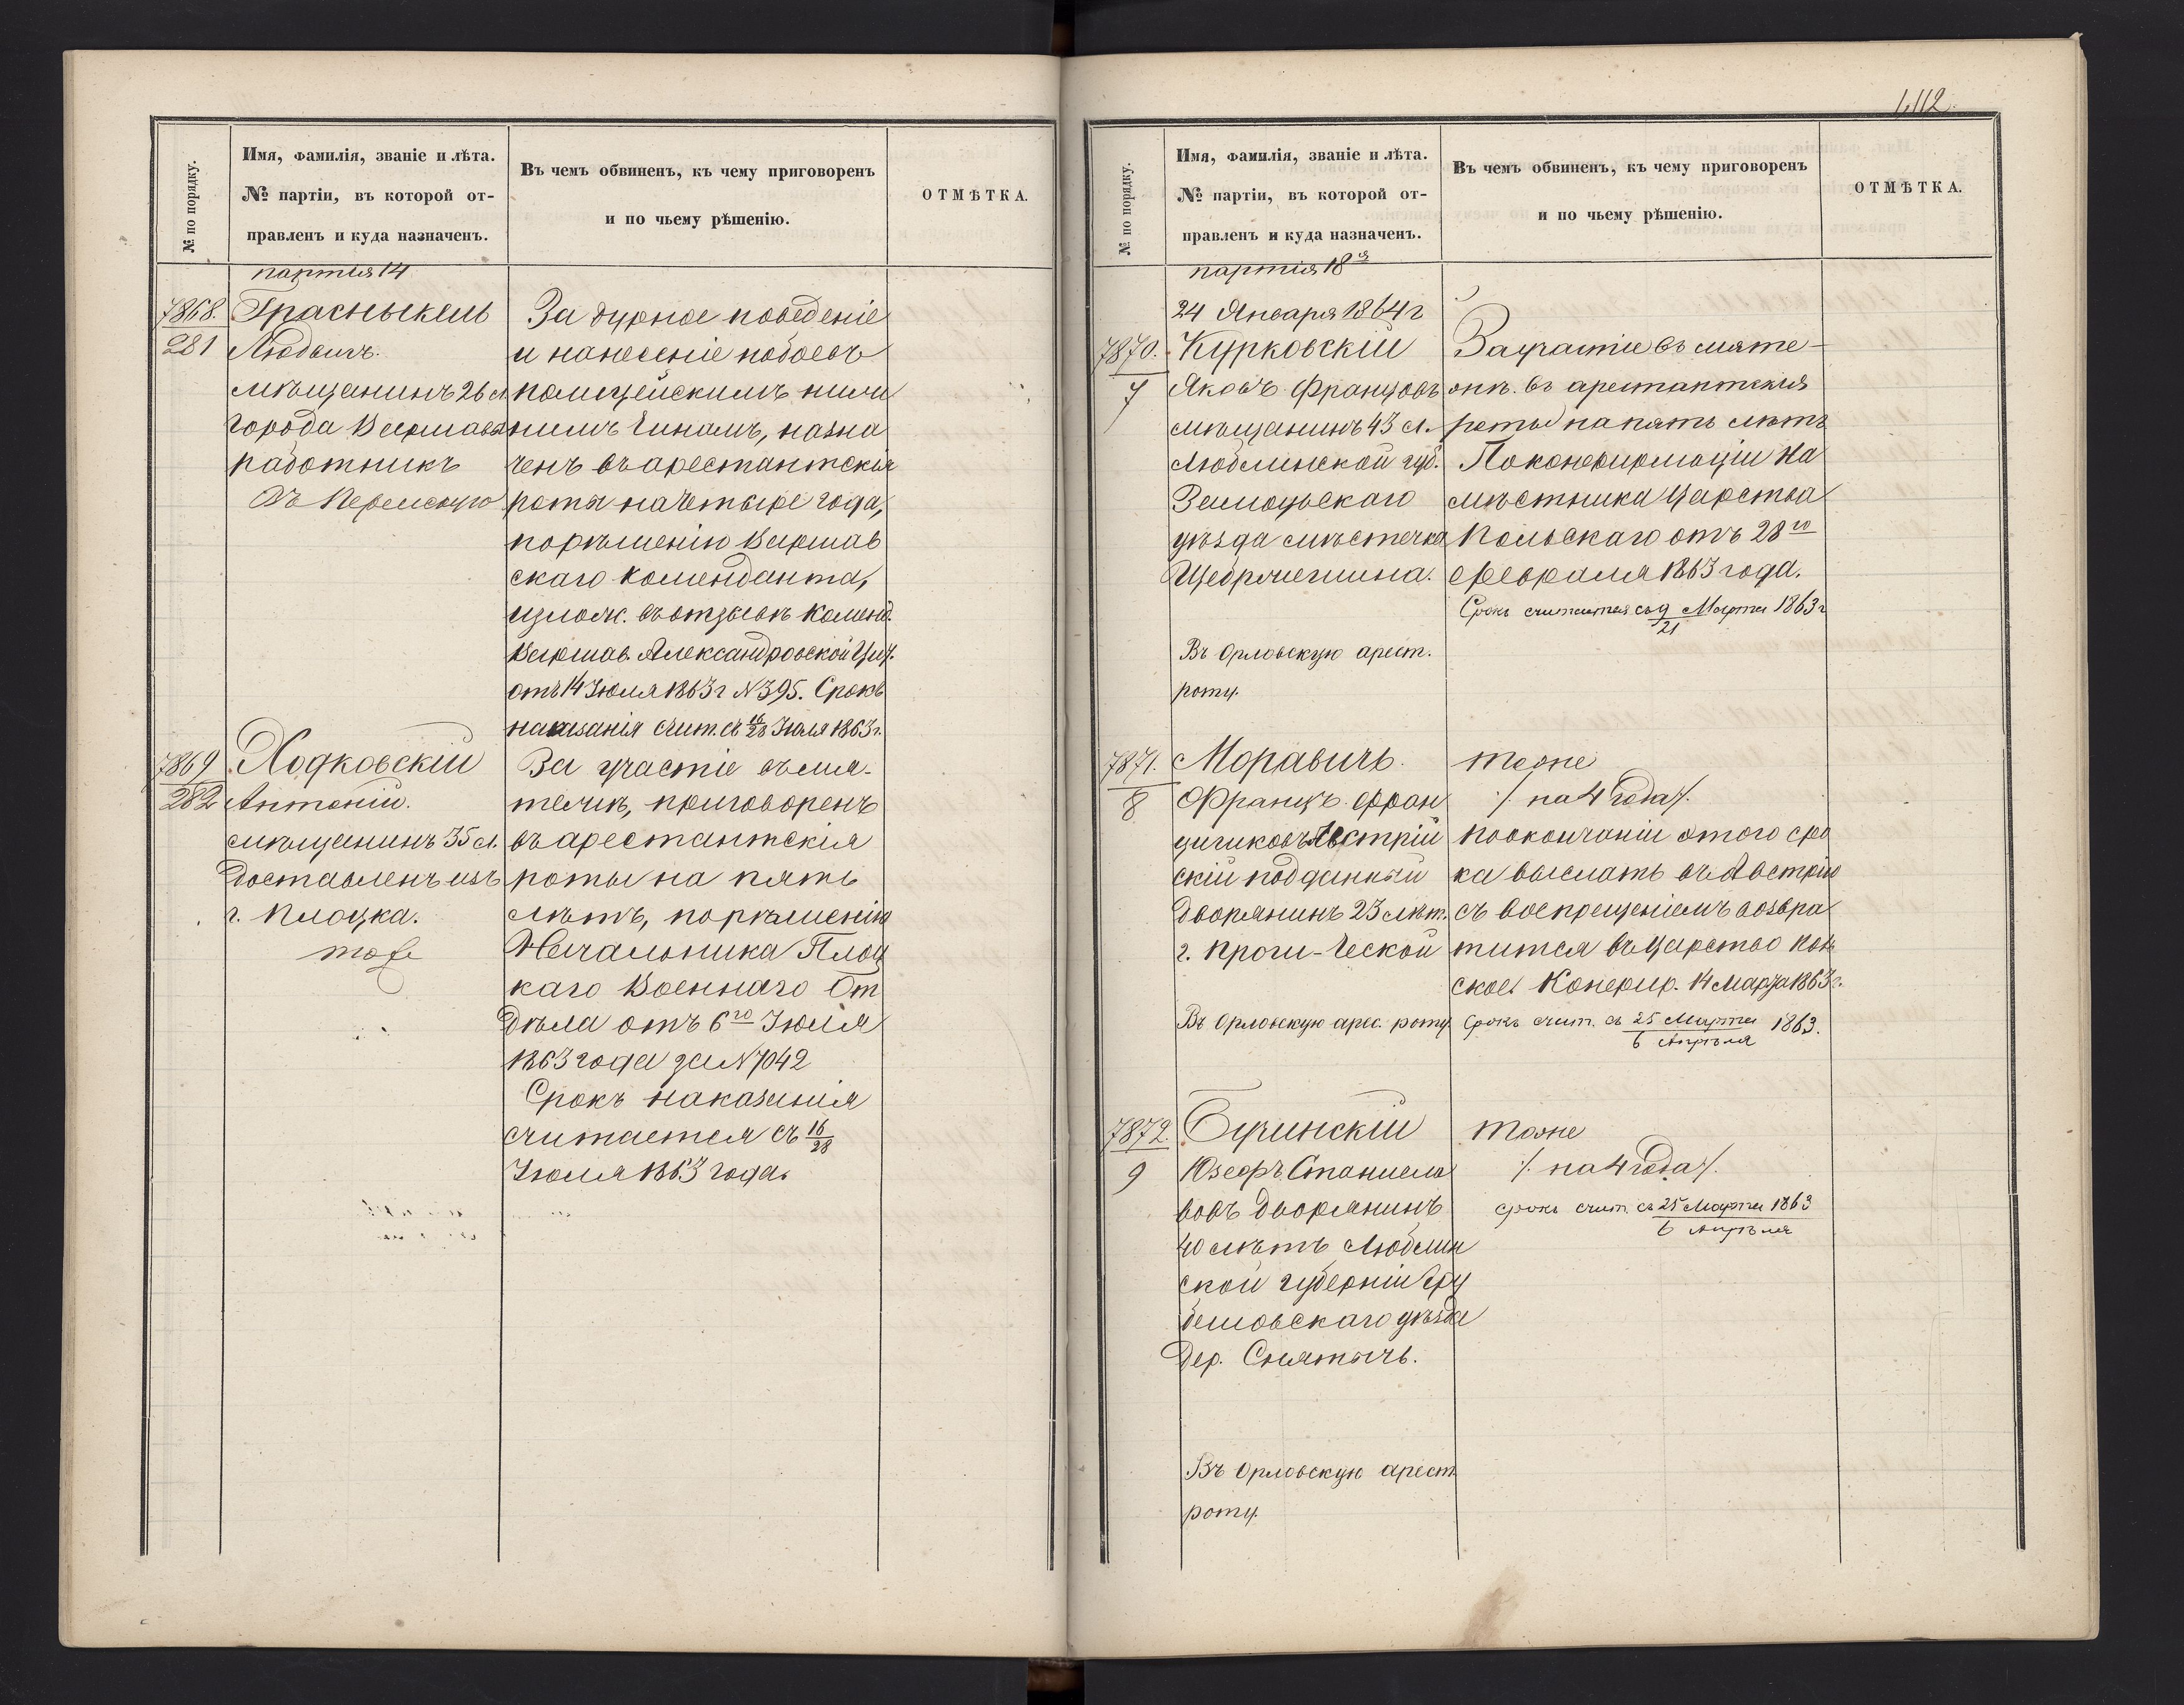 № по порядку.
Имя, фамилія, званіе и лѣта.
№ партіи, въ которой от-
правленъ и куда назначенъ.
Въ чемъ обвиненъ, къ чему приговоренъ
и по чьему рѣшенію.
ОТМѢТКА.
партія 14
7868.
281
Грасныкель
Людвигъ.
мѣщанинъ 26 л.
города Варшавы
работникъ
Въ Пермскую
За дурное поведеніе
и нанесеніе побоевъ
полицейскимъ нижи
нимъ Чинамъ, назна
ченъ въ арестантскія
роты на четыре года,
по рѣшенію Варшав
скаго Коменданта,
излож. въ отзывѣ Коменд.
Варшав. Александровской Цит.
отъ 14 Іюля 1863 г N 395. Срокъ
наказанія счит. съ 16/28 Іюля 1863 г.
7869
282
Ходковскій
Антоній.
мѣщанинъ 35 л.
доставленъ изъ
г. Плоцка.
тоже
За участіе въ мя-
тежѣ, приговоренъ
въ арестантскія
роты на пять
лѣтъ, по рѣшенію
Начальника Плоц
каго Военнаго От
дѣла отъ 6го Іюля
1863 года за N 7042
Срокъ наказанія
считается съ 16/28
Іюля 1863 года.
1,112.
№ по порядку.
Имя, фамилія, званіе и лѣта.
№ партіи, въ которой от-
правленъ и куда назначенъ.
Въ чемъ обвиненъ, къ чему приговоренъ
и по чьему рѣшенію.
ОТМѢТКА.
партія 18я
24 Января 1864 г
7870.
7
Курковскій
Яковъ Францовъ
мѣщанинъ 43 л.
Люблинской губ.
Замоцьскаго
уѣзда мѣстечка
Щебржешина.
Въ Орловскую арест.
роту.
За участіе въ мяте-
жѣ. въ арестантскія
роты на пять лѣтъ
По конфирмаціи На
мѣстника Царства
Польскаго отъ 28го
Февраля 1863 года.
Срокъ считается съ 9/21 Марта 1863 г
7871.
8
Моравичъ.
Францъ Фран
цишковъ Австрій
скій подданный
дворянинъ 23 лѣт.
г. Проги-Ческой
Въ Орловскую арес. роту.
тоже
/. на 4 года /.
по окончаніи этого сро
ка выслать въ Австрію
съ воспрещеніемъ возвра
титься въ Царство Поль
ское. Конфир. 14 Марта 1863 г.
Срокъ счит. съ 25 Марта / 6 Апрѣля 1863.
7872.
9
Бучинскій
Юзефъ Станисла
вовъ дворянинъ
40 лѣтъ Люблин
ской губерніи Гру
бешовскаго уѣзда
дер. Снятычь.
Въ Орловскую арест
роту.
тоже
/. на 4 года /.
срокъ счит. съ 25 Марта / 6 Апрѣля 1863